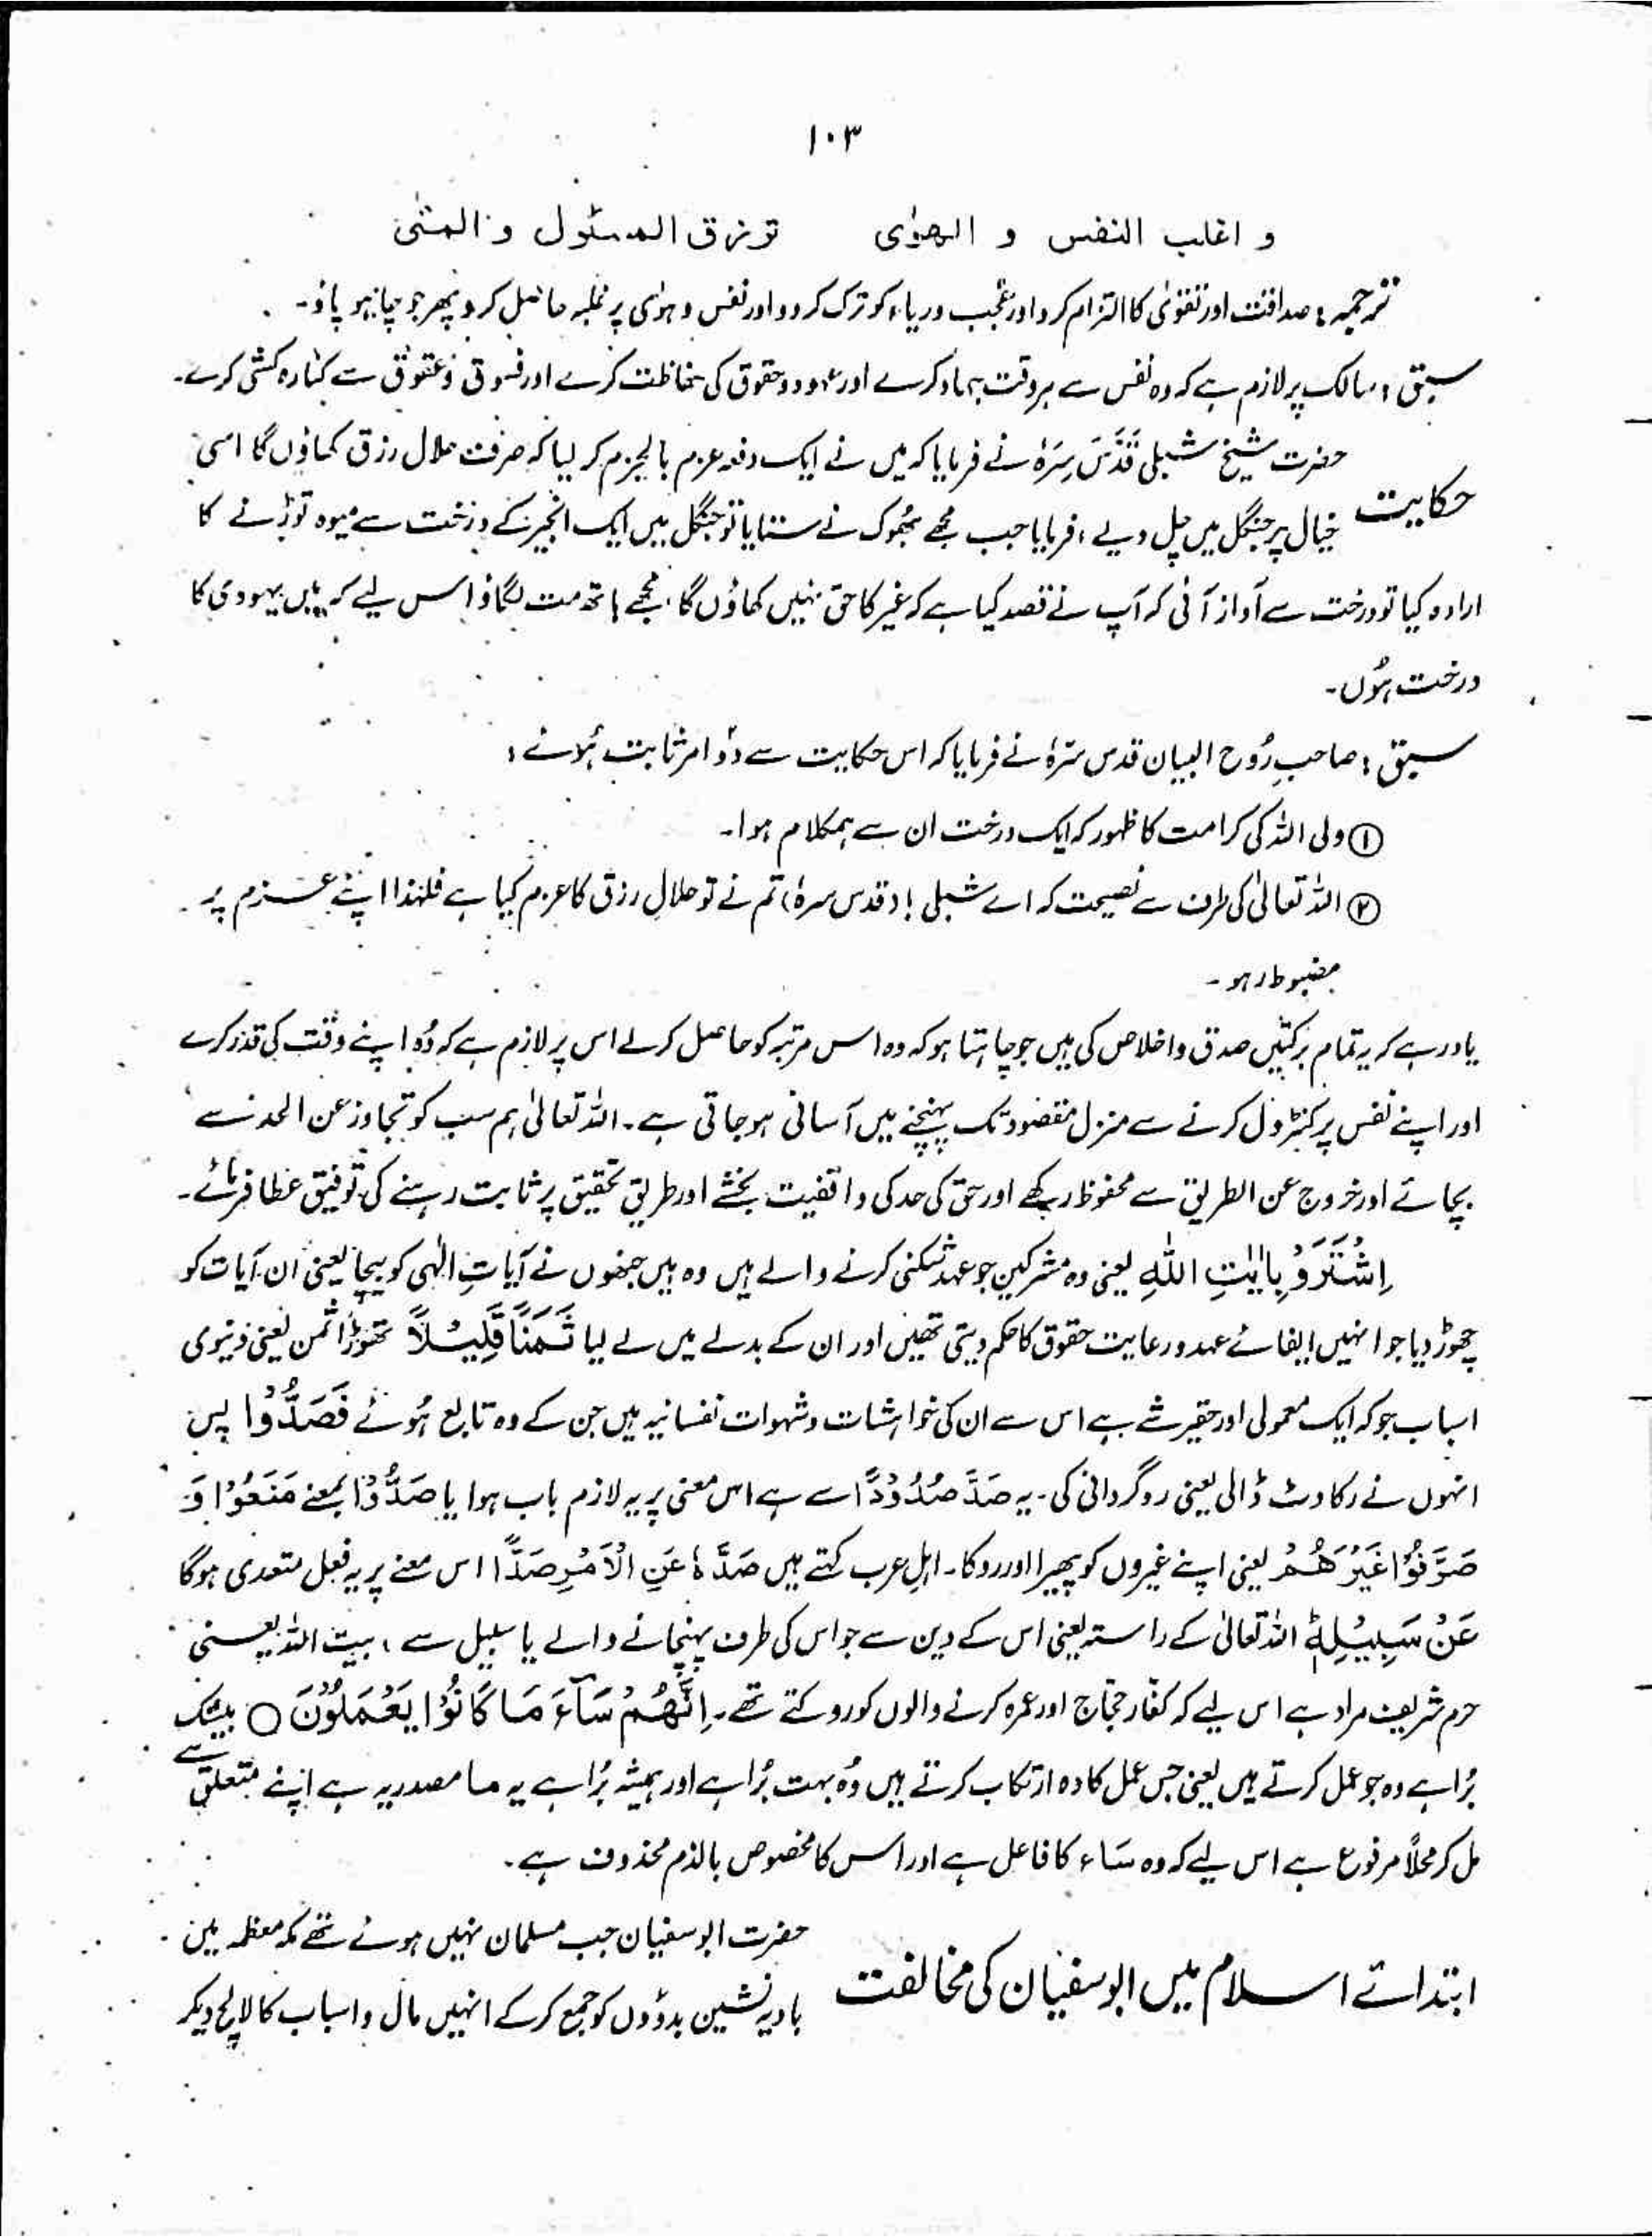 ۱۰۳
و اغلب النفس و الھوٰی ترزق السئول و المنٰی
ترجمہ : صداقت اور تقویٰ کا التزام کرو اور عُجب و ریاء کو ترک کردو اور نفس و ہوٰی پر غلبہ حاصل کرو پھر جو چاہو پاؤ۔
سبق : سالک پر لازم ہے کہ وہ نفس سے ہر وقت جہاد کرے اور حدود و حقوق کی حفاظت کرے اور فسوق و عقوق سے کنارہ کشی کرے۔
حضرت شیخ شبلی قَدَّسَ سِرَّہٗ نے فرمایا کہ میں نے ایک دفعہ عزم بالجزم کر لیا کہ صرف حلال رزق کھاؤں گا اسی
حکایت
خیال پر جنگل میں چل دیے ، فرمایا جب مجھے بھُوک نے ستایا تو جنگل میں ایک انجیر کے درخت سے میوہ توڑنے کا
ارادہ کیا تو درخت سے آواز آئی کہ آپ نے قصد کیا ہے کہ غیر کا حق نہیں کھاؤں گا ، مجھے ہاتھ مت لگاؤ اس لیے کہ میں یہودی کا
درخت ہُوں۔
سبق : صاحبِ رُوح البیان قدس سرّہٗ نے فرمایا کہ اس حکایت سے دو امر ثابت ہُوئے :
① ولی اللہ کی کرامت کا ظہور کہ ایک درخت ان سے ہمکلام ہوا۔
② اللہ تعالیٰ کی طرف سے نصیحت کہ اے شبلی ! (قدس سرہٗ) تم نے تو حلال رزق کا عزم کیا ہے فلہٰذا اپنے عزم پر
مضبوط رہو۔
یاد رہے کہ یہ تمام برکتیں صدق و اخلاص کی ہیں جو چاہتا ہو کہ وہ اس مرتبہ کو حاصل کرلے اس پر لازم ہے کہ وُہ اپنے وقت کی قدر کرے
اور اپنے نفس پر کنٹرول کرنے سے منزل مقصود تک پہنچنے میں آسانی ہوجاتی ہے۔ اللہ تعالیٰ ہم سب کو تجاوز عن الحد سے
بچائے اور خروج عن الطریق سے محفوظ رکھے اور حق کی حد کی واقفیت بخشے اور طریق تحقیق پر ثابت رہنے کی توفیق عطا فرمائے۔
اِشْتَرَوْا بِاٰیٰتِ اللّٰهِ یعنی وہ مشرکین جو عہد شکنی کرنے والے ہیں وہ ہیں جنھوں نے آیاتِ الٰہی کو بیچا یعنی ان آیات کو
چھوڑ دیا جو انہیں ایفائے عہد و رعایت حقوق کا حکم دیتی تھیں اور ان کے بدلے میں لے لیا ثَمَنًا قَلِیْلًا تھوڑا ثمن یعنی دنیوی
اسباب جو کہ ایک معمولی اور حقیر شے ہے اس سے ان کی خواہشات و شہوات نفسانیہ ہیں جن کے وہ تابع ہُوئے فَصَدُّوْا پس
انہوں نے رکاوٹ ڈالی یعنی روگردانی کی۔ یہ صَدَّ صُدُوْدًا سے ہے اس معنی پر یہ لازم باب ہوا یا صَدُّوْا بمعنے مَنَعُوْا وَ
صَرَّفُوْا غَیْرَهُمْ یعنی اپنے غیروں کو پھیرا اور روکا۔ اہلِ عرب کہتے ہیں صَدَّہٗ عَنِ الْاَمْرِ صَدًّا اس معنے پر یہ فعل متعدی ہوگا
عَنْ سَبِیْلِهٖ اللہ تعالیٰ کے راستہ یعنی اس کے دین سے جو اس کی طرف پہنچانے والے یا سبیل سے ، بیت اللہ یعنی
حرم شریف مراد ہے اس لیے کہ کفّار حجّاج اور عمرہ کرنے والوں کو روکتے تھے۔ اِنَّهُمْ سَآءَ مَا کَانُوْا یَعْمَلُوْنَ ○ بیشک
بُرا ہے وہ جو عمل کرتے ہیں یعنی جس عمل کا وہ ارتکاب کرتے ہیں وُہ بہت بُرا ہے اور ہمیشہ بُرا ہے یہ ما مصدریہ ہے اپنے متعلق سے
مل کر محلاً مرفوع ہے اس لیے کہ وہ سَاء کا فاعل ہے اور اس کا مخصوص بالذم محذوف ہے۔
ابتدائے اسلام میں ابوسفیان کی مخالفت
حضرت ابوسفیان جب مسلمان نہیں ہوئے تھے مکہ معظمہ میں
بادیہ نشین بدوؤں کو جمع کرکے انہیں مال و اسباب کا لالچ دیکر